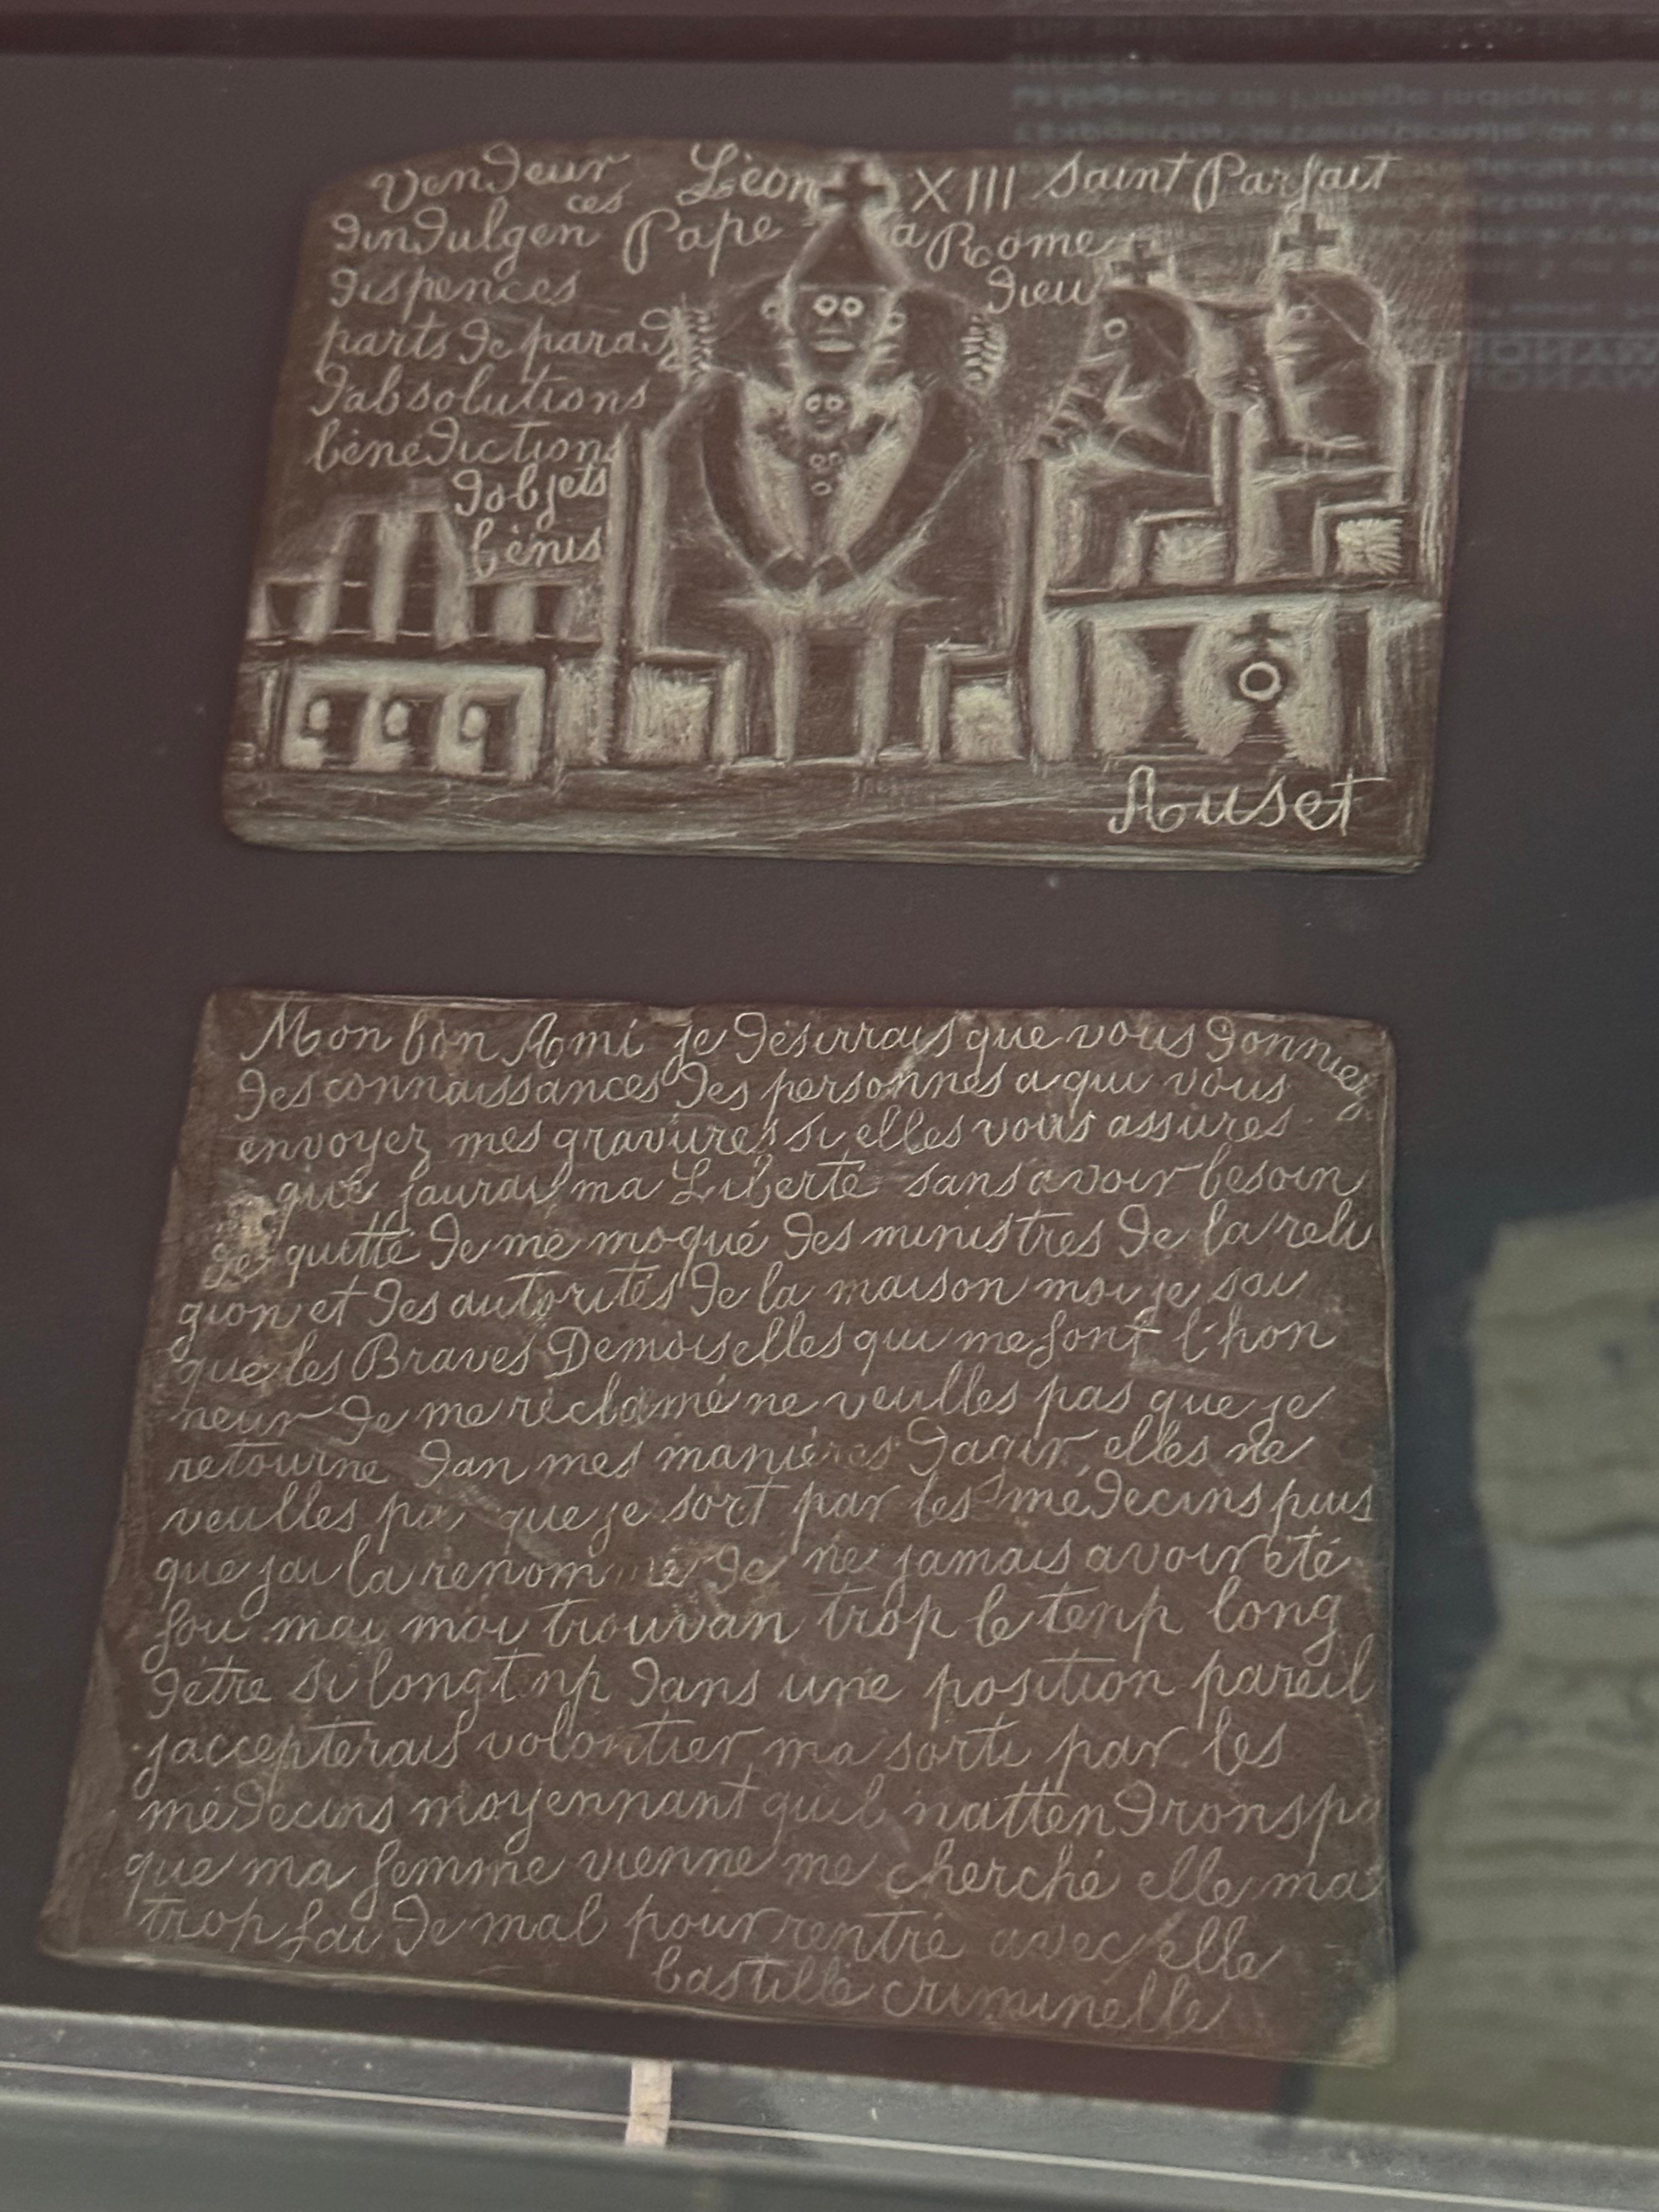 Vendeur Léon XIII Saint Parfait
ces
dindulgen Pape a Rome
dispences dieu
parts de parad
dabsolutions
bénédictions
dobjets
bénis
Auset
Mon bon Ami je désirrais que vous donniez
des connaissances des personnes a qui vous
envoyez mes gravures si elles vous assures
que jaurais ma Liberté sans avoir besoin
de quitté de me moqué des ministres de la reli
gion et des autorités de la maison moi je sai
que les Braves Demoiselles qui me font l'hon
neur de me réclamé ne veulles pas que je
retourne dan mes manières dagir, elles ne
veulles pa que je sort par les médecins puis
que jai la renommé de ne jamais avoir été
fou mai moi trouvan trop le temp long
détre si longtemp dans une position pareil
jaccepterais volontier ma sorti par les
médecins moyennant quil nattendrons pa
que ma femme vienne me cherché elle ma
trop fai de mal pour rentré avec elle
bastille criminelle